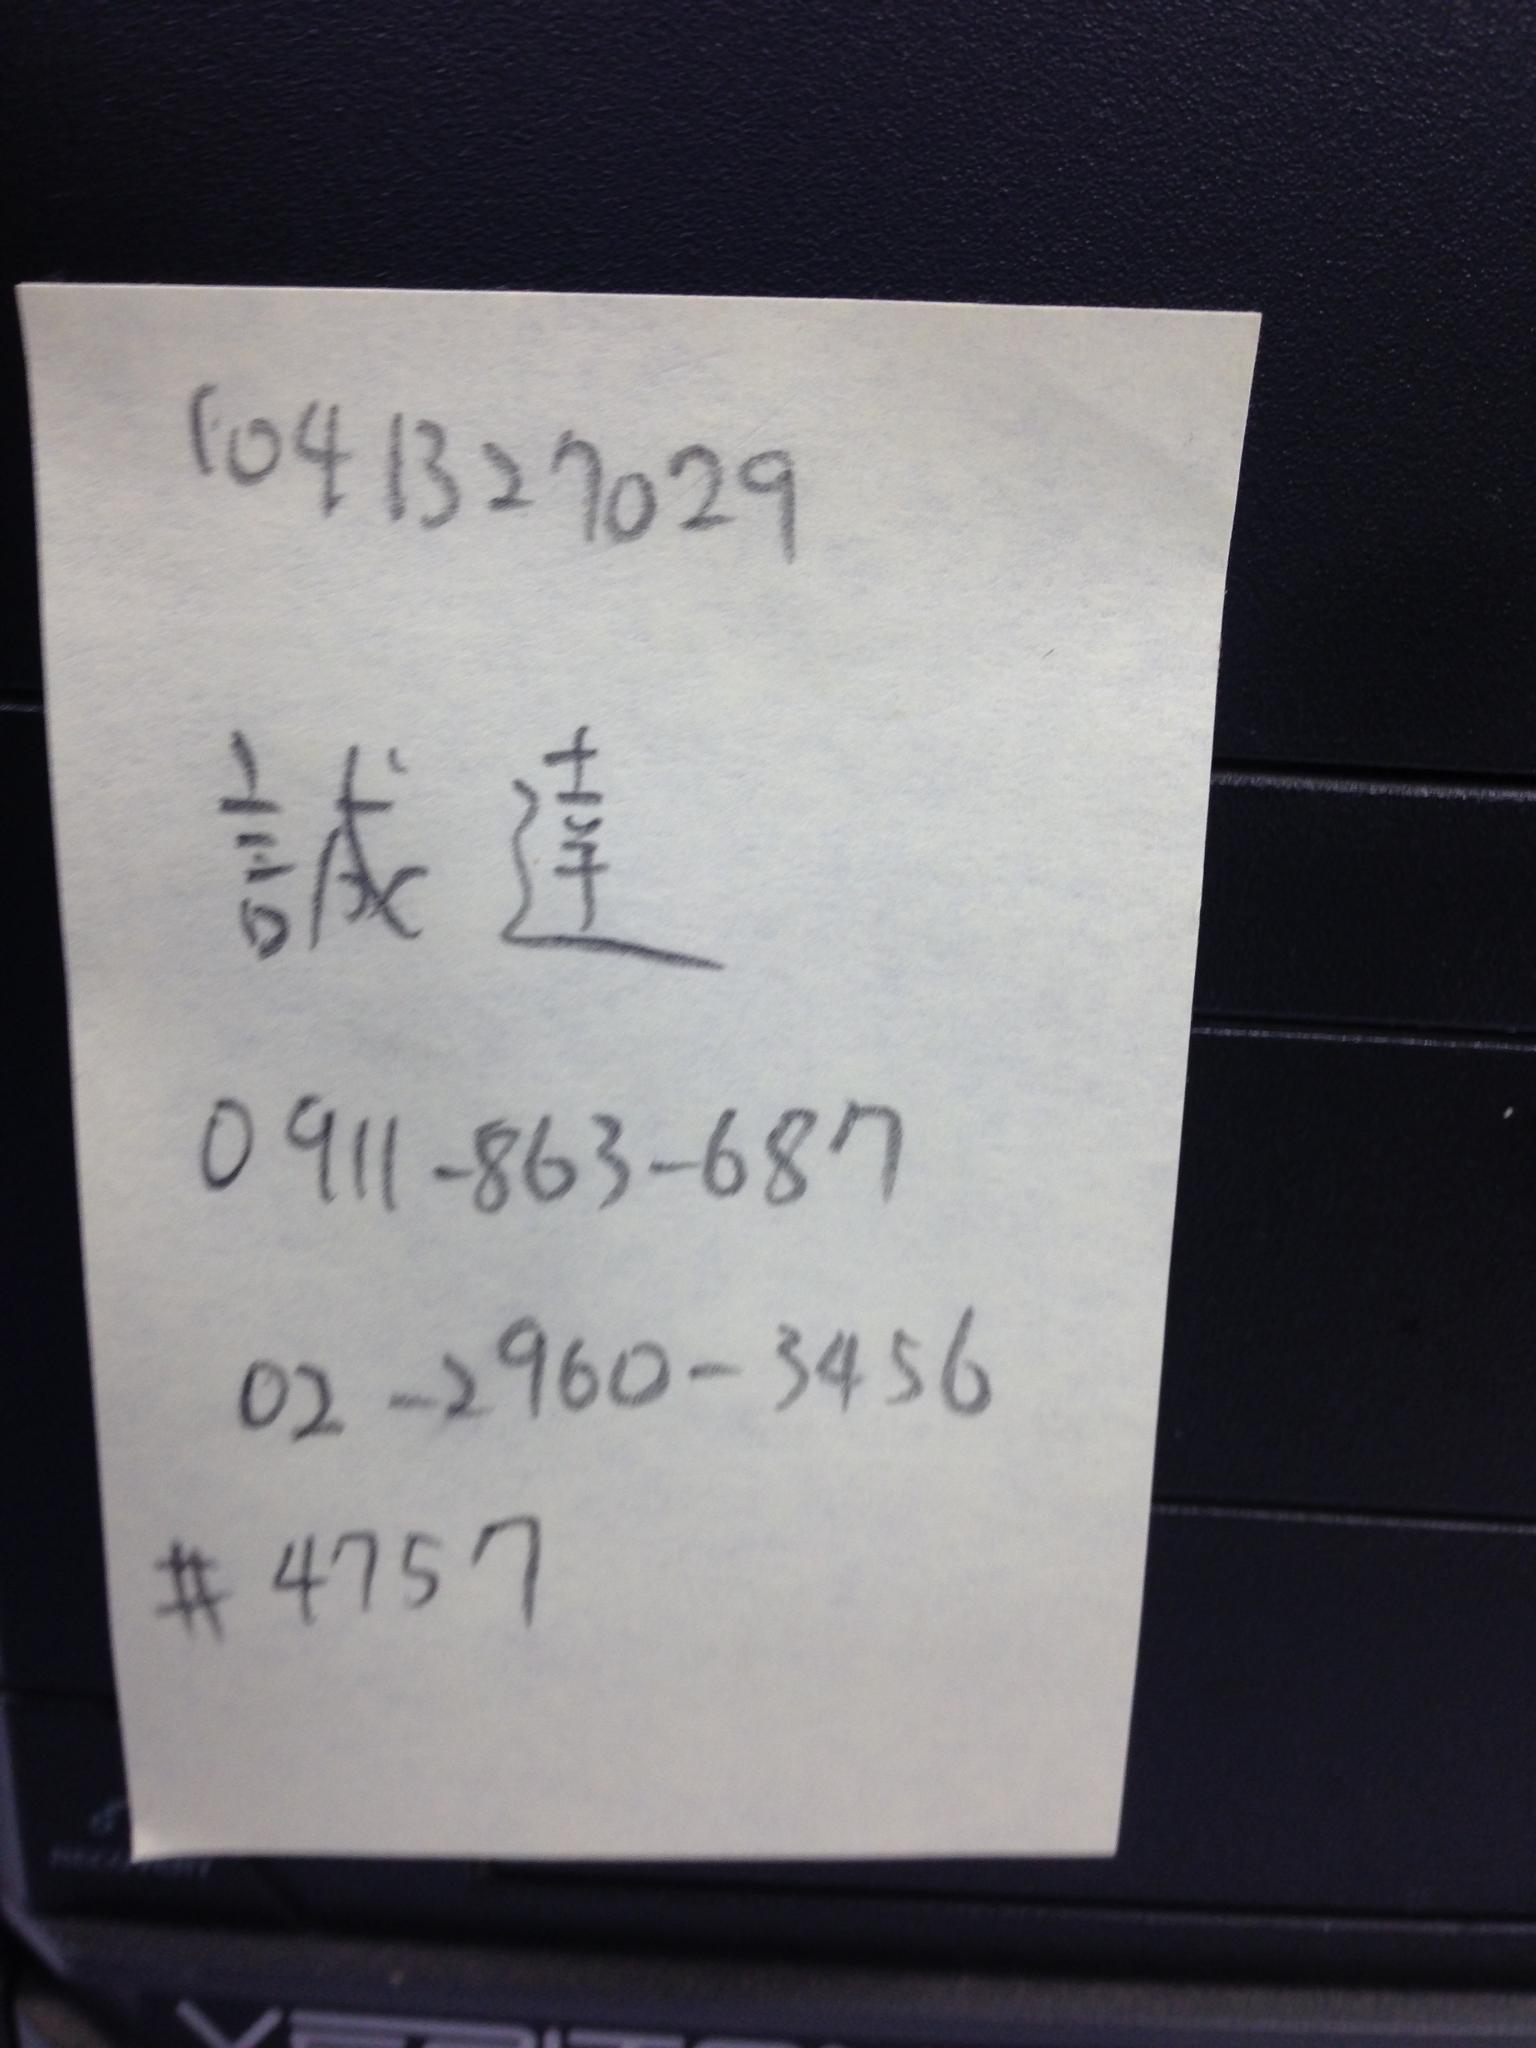 1041327029
誠達
0911-863-687
02-2960-3456
#4757